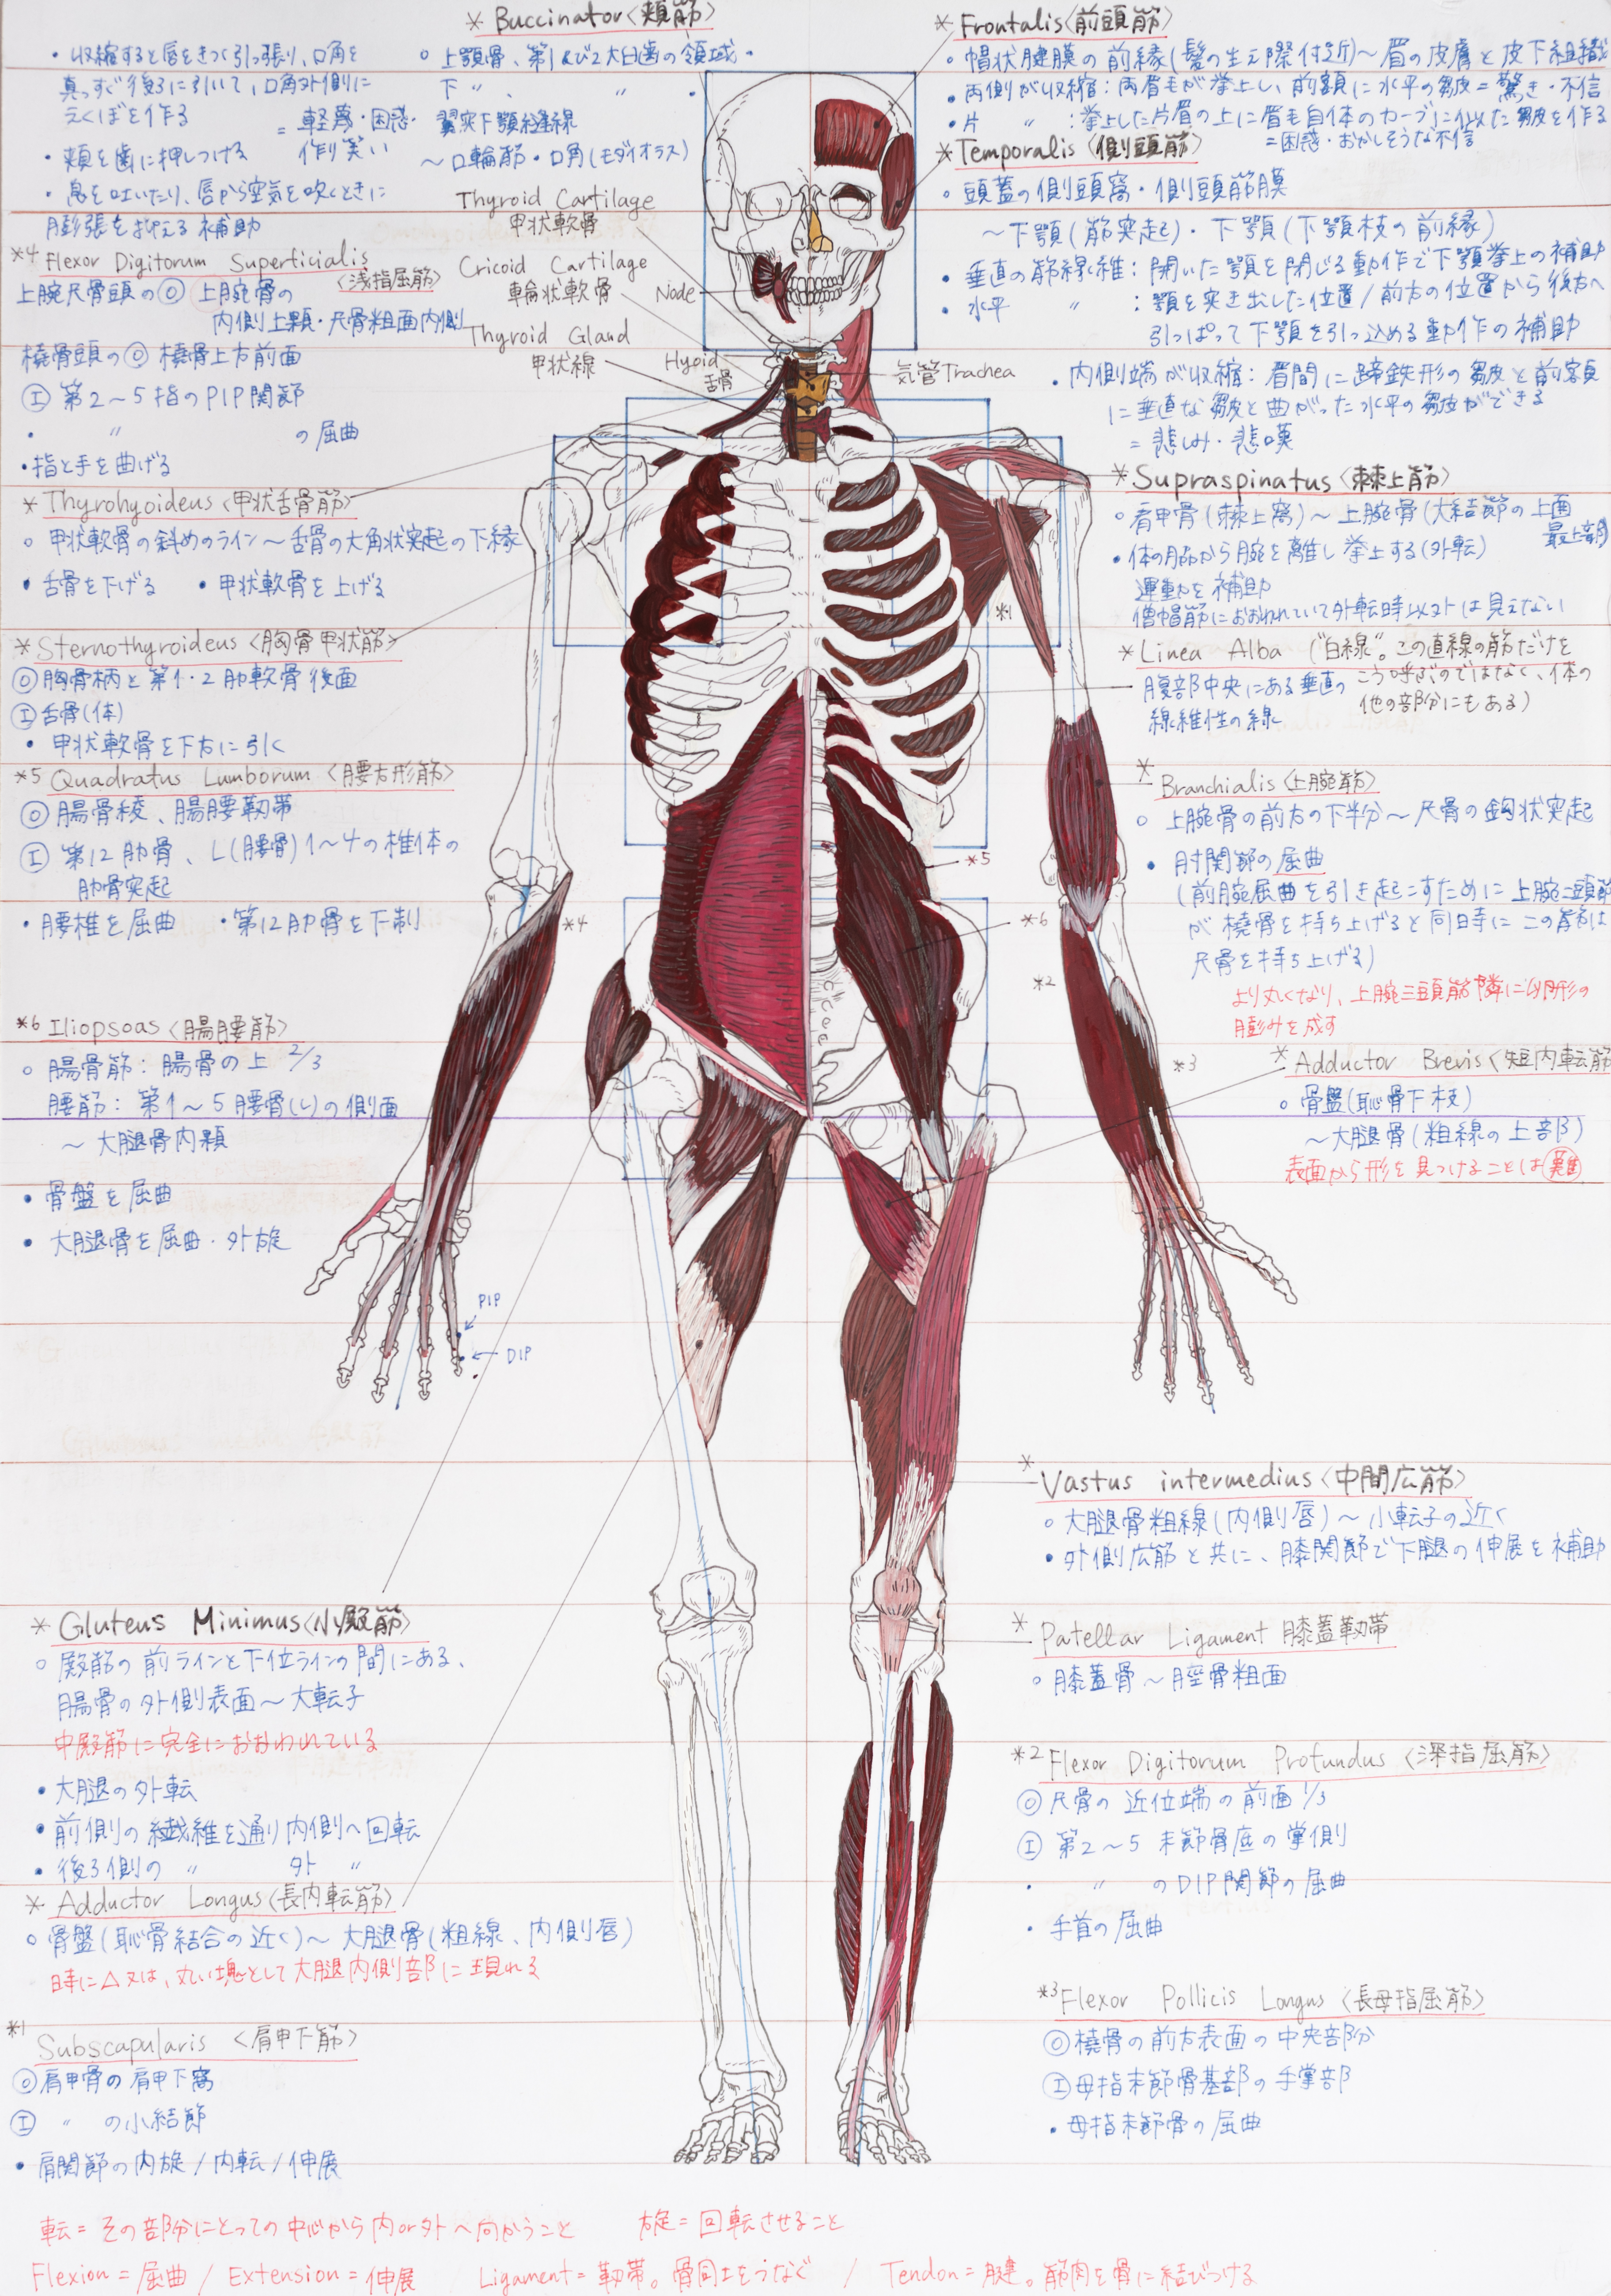 * Buccinator〈頬筋〉
・収縮すると唇をきつく引っ張り、口角を
真っすぐ後ろに引いて、口角外側に
えくぼを作る
= 軽蔑・困惑・
作り笑い
・頬を歯に押しつける
・息を吐いたり、唇から空気を吹くときに
膨張を抑える補助
○ 上顎骨、第1及び2大臼歯の領域・
下 〃 、 〃 ・
翼突下顎縫線
〜口輪筋・口角(モダイオラス)
Thyroid Cartilage
甲状軟骨
Cricoid Cartilage
輪状軟骨
Node
Thyroid Gland
甲状線
Hyoid
舌骨
気管Trachea
*4 Flexor Digitorum Superficialis
〈浅指屈筋〉
上腕尺骨頭のⓄ 上腕骨の
内側上顆・尺骨粗面内側
橈骨頭のⓄ 橈骨上方前面
Ⓘ 第2〜5指のPIP関節
・ 〃 の屈曲
・指と手を曲げる
* Thyrohyoideus〈甲状舌骨筋〉
○ 甲状軟骨の斜めのライン〜舌骨の大角状突起の下縁
・舌骨を下げる ・甲状軟骨を上げる
* Sternothyroideus〈胸骨甲状筋〉
Ⓞ胸骨柄と第1・2肋軟骨後面
Ⓘ舌骨(体)
・甲状軟骨を下方に引く
*5 Quadratus Lumborum〈腰方形筋〉
Ⓞ腸骨稜、腸腰靭帯
Ⓘ 第12肋骨、L(腰骨)1〜4の椎体の
肋骨突起
・腰椎を屈曲 ・第12肋骨を下制
*6 Iliopsoas〈腸腰筋〉
○ 腸骨筋：腸骨の上 2/3
腰筋：第1〜5腰骨(L)の側面
〜大腿骨内顆
・骨盤を屈曲
・大腿骨を屈曲・外旋
PIP
DIP
* Gluteus Minimus〈小殿筋〉
○ 殿筋の前ラインと下位ラインの間にある、
腸骨の外側表面〜大転子
中殿筋に完全におおわれている
・大腿の外転
・前側の繊維を通り内側へ回転
・後ろ側の 〃 外 〃
* Adductor Longus〈長内転筋〉
○ 骨盤(恥骨結合の近く)〜大腿骨(粗線、内側唇)
時に△又は、丸い塊として大腿内側部に現れる
*1
Subscapularis〈肩甲下筋〉
Ⓞ肩甲骨の肩甲下窩
Ⓘ 〃 の小結節
・肩関節の内旋/内転/伸展
* Frontalis〈前頭筋〉
○ 帽状腱膜の前縁(髪の生え際付近)〜眉の皮膚と皮下組織
・両側が収縮：両眉毛が挙上し、前額に水平の皺皮=驚き・不信
・片 〃 ：挙上した片眉の上に眉毛自体のカーブに似た皺皮を作る
=困惑・おかしそうな不信
* Temporalis〈側頭筋〉
○ 頭蓋の側頭窩・側頭筋膜
〜下顎(筋突起)・下顎(下顎枝の前縁)
・垂直の筋線維：開いた顎を閉じる動作で下顎挙上の補助
・水平 〃 ：顎を突き出した位置/前方の位置から後方へ
引っぱって下顎を引っ込める動作の補助
・内側端が収縮：眉間に蹄鉄形の皺皮と前額
に垂直な皺皮と曲がった水平の皺皮ができる
= 悲しみ・悲嘆
* Supraspinatus〈棘上筋〉
○ 肩甲骨(棘上窩)〜上腕骨(大結節の上面
最上部)
・体の脇から腕を離し挙上する(外転)
運動を補助
僧帽筋におおわれていて外転時以外は見えない
*1
* Linea Alba ("白線"。この直線の筋だけを
こう呼ぶのではなく、体の
他の部分にもある)
腹部中央にある垂直の
線維性の線
* Branchialis〈上腕筋〉
○ 上腕骨の前方の下半分〜尺骨の鈎状突起
・肘関節の屈曲
(前腕屈曲を引き起こすために上腕二頭筋
が橈骨を持ち上げると同時にこの筋は
尺骨を持ち上げる)
より丸くなり、上腕三頭筋隣に卵形の
膨みを成す
*5
*4
*6
*2
*3
* Adductor Brevis〈短内転筋
○ 骨盤(恥骨下枝)
〜大腿骨(粗線の上部)
表面から形を見つけることは難
* Vastus intermedius〈中間広筋〉
○ 大腿骨粗線(内側唇)〜小転子の近く
・外側広筋と共に、膝関節で下腿の伸展を補助
* Patellar Ligament 膝蓋靭帯
○ 膝蓋骨〜脛骨粗面
*2 Flexor Digitorum Profundus〈深指屈筋〉
Ⓞ 尺骨の近位端の前面1/3
Ⓘ 第2〜5末節骨底の掌側
・ 〃 のDIP関節の屈曲
・手首の屈曲
*3 Flexor Pollicis Longus〈長母指屈筋〉
Ⓞ橈骨の前方表面の中央部分
Ⓘ母指末節骨基部の手掌部
・母指末節骨の屈曲
転=その部分にとっての中心から内or外へ向かうこと 旋=回転させること
Flexion=屈曲 / Extension=伸展 Ligament=靭帯。骨同士をつなぐ / Tendon=腱。筋肉を骨に結びつける